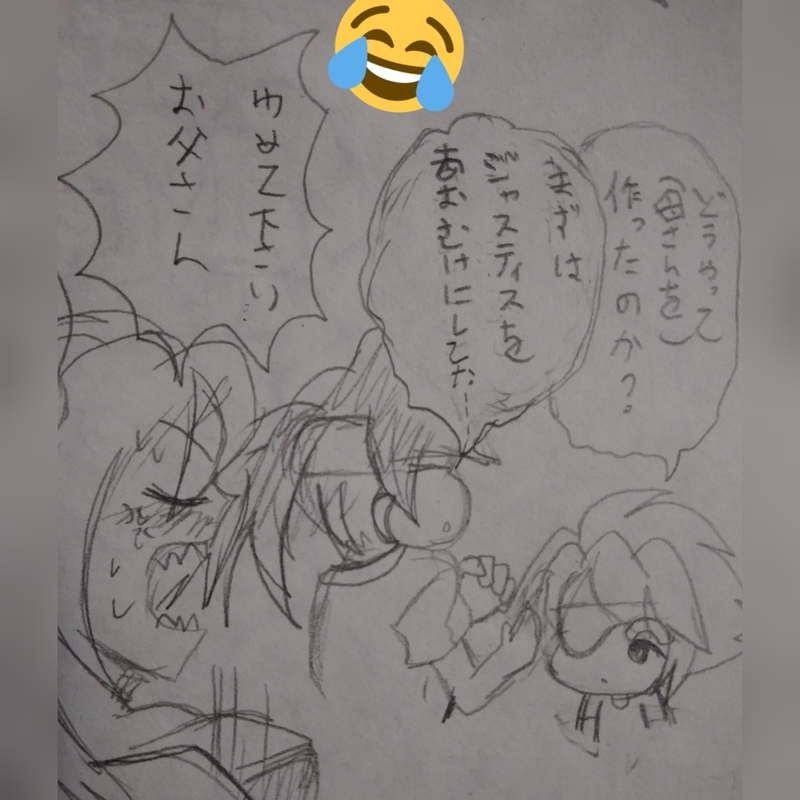 どうやって
(母さんを)
作ったのか?
まずは
ジャスティスを
あおむけにしてだ---
やめて下さい...
お父さん